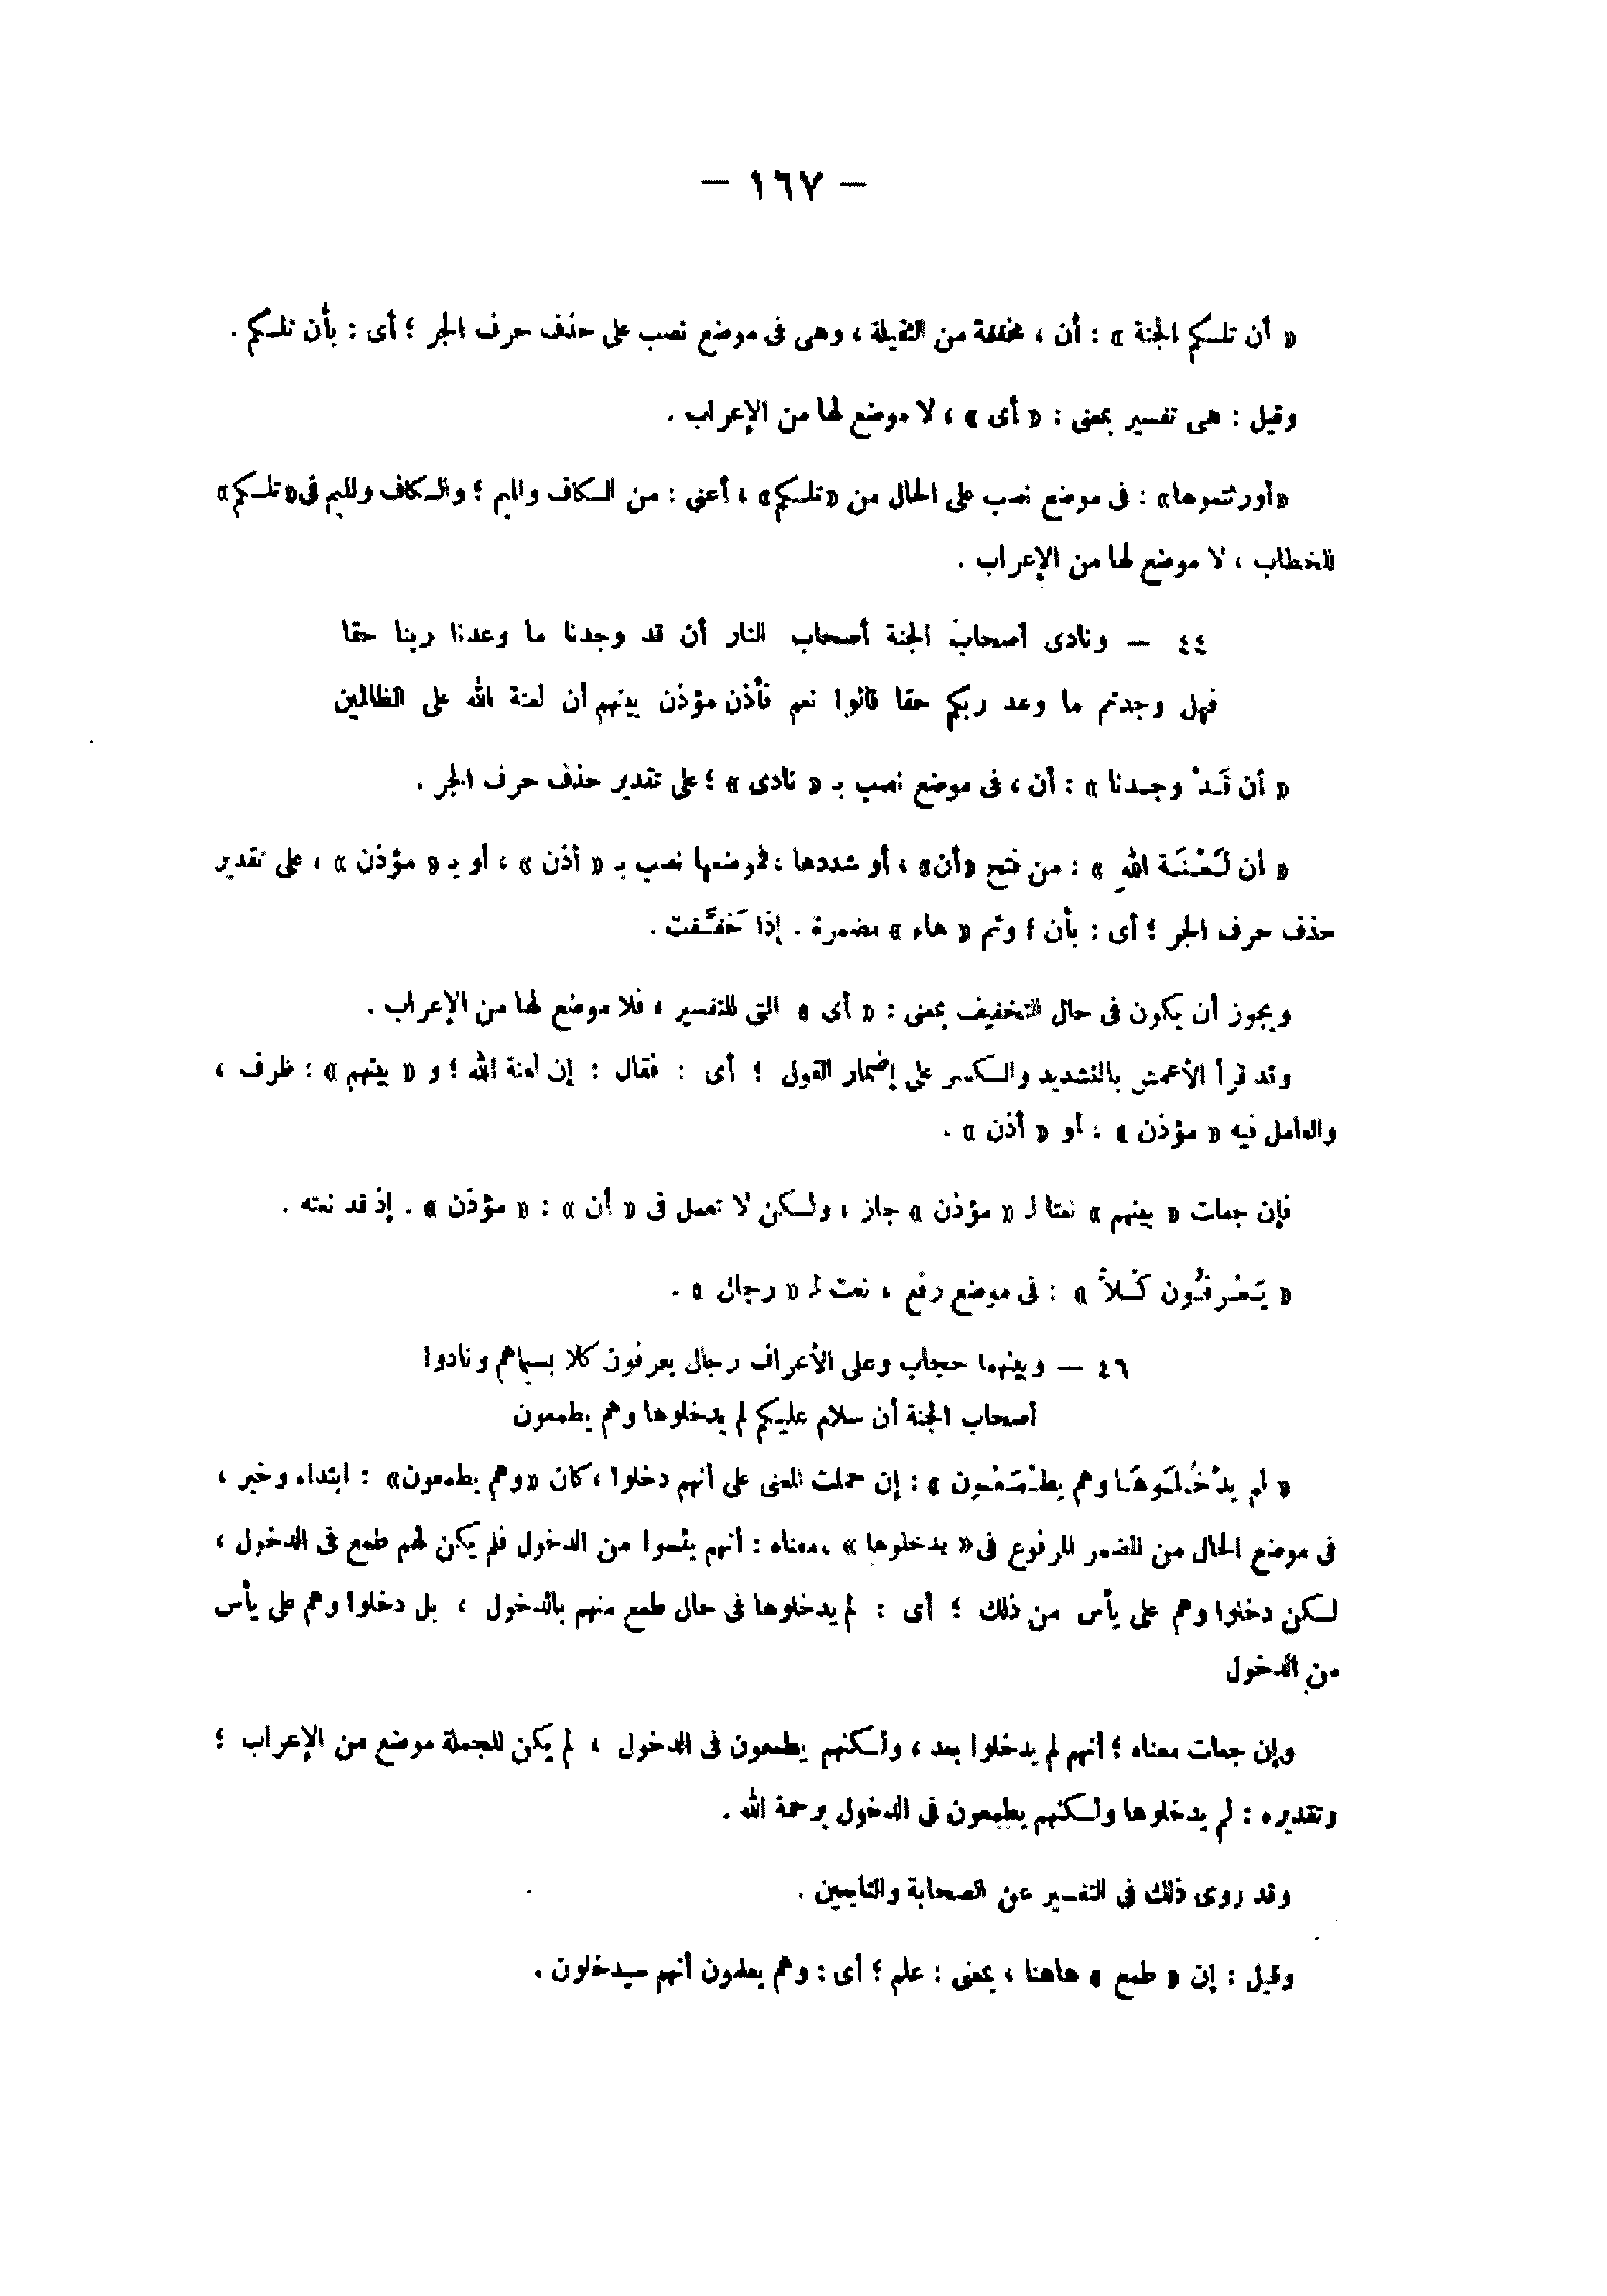 — ١٦٧ —
« أن تلكم الجنة » : أن ، مخففة من الثقيلة ، وهى فى موضع نصب على حذف حرف الجر ؛ أى : بأن تلكم .
وقيل : هى تفسير بمعنى : « أى » ، لا موضع لها من الإعراب .
«أورثتموها» : فى موضع نصب على الحال من «تلكم» ، أعنى : من الكاف والميم ؛ والكاف والميم فى«تلكم»
للخطاب ، لا موضع لها من الإعراب .
٤٤ — ونادى أصحاب الجنة أصحاب النار أن قد وجدنا ما وعدنا ربنا حقا
فهل وجدتم ما وعد ربكم حقا قالوا نعم فأذن مؤذن بينهم أن لعنة الله على الظالمين
« أن قَدْ وجدنا » : أن ، فى موضع نصب بـ « نادى » ؛ على تقدير حذف حرف الجر .
« أن لَعْنَة اللهِ » : من فتح «أن» ، أو شددها ، فموضعها نصب بـ « أذن » ، أو بـ « مؤذن » ، على تقدير
حذف حرف الجر ؛ أى : بأن ؛ وثم « هاء » مضمرة . إذا خَفَّفت .
ويجوز أن يكون فى حال التخفيف بمعنى : « أى » التى للتفسير ، فلا موضع لها من الإعراب .
وقد قرأ الأعمش بالتشديد والكسر على إضمار القول ؛ أى : فقال : إن لعنة الله ؛ و « بينهم » : ظرف ،
والعامل فيه « مؤذن » ، أو « أذن » .
فإن جعلت « بينهم » نعتا لـ « مؤذن » جاز ، ولكن لا تعمل فى « أن » : « مؤذن » . إذ قد نعته .
« يَعْرفُون كُلاًّ » : فى موضع رفع ، نعت لـ « رجال » .
٤٦ — وبينهما حجاب وعلى الأعراف رجال يعرفون كلا بسيماهم ونادوا
أصحاب الجنة أن سلام عليكم لم يدخلوها وهم يطمعون
« لم يدْخُلُوهَا وهم يطْمَعُون » : إن حملت المعنى على أنهم دخلوا ، كان «وهم يطمعون» : ابتداء وخبر ،
فى موضع الحال من المضمر المرفوع فى« يدخلوها » ،معناه : أنهم يئسوا من الدخول فلم يكن لهم طمع فى الدخول ،
لكن دخلوا وهم على يأس من ذلك ؛ أى : لم يدخلوها فى حال طمع منهم بالدخول ، بل دخلوا وهم على يأس
من الدخول
وإن جعلت معناه ؛ أنهم لم يدخلوا بعد ، ولكنهم يطمعون فى الدخول ، لم يكن للجملة موضع من الإعراب ؛
وتقديره : لم يدخلوها ولكنهم يطمعون فى الدخول برحمة الله .
وقد روى ذلك فى التفسير عن الصحابة والتابعين .
وقيل : إن « طمع » هاهنا ، بمعنى : علم ؛ أى : وهم يعلمون أنهم سيدخلون .